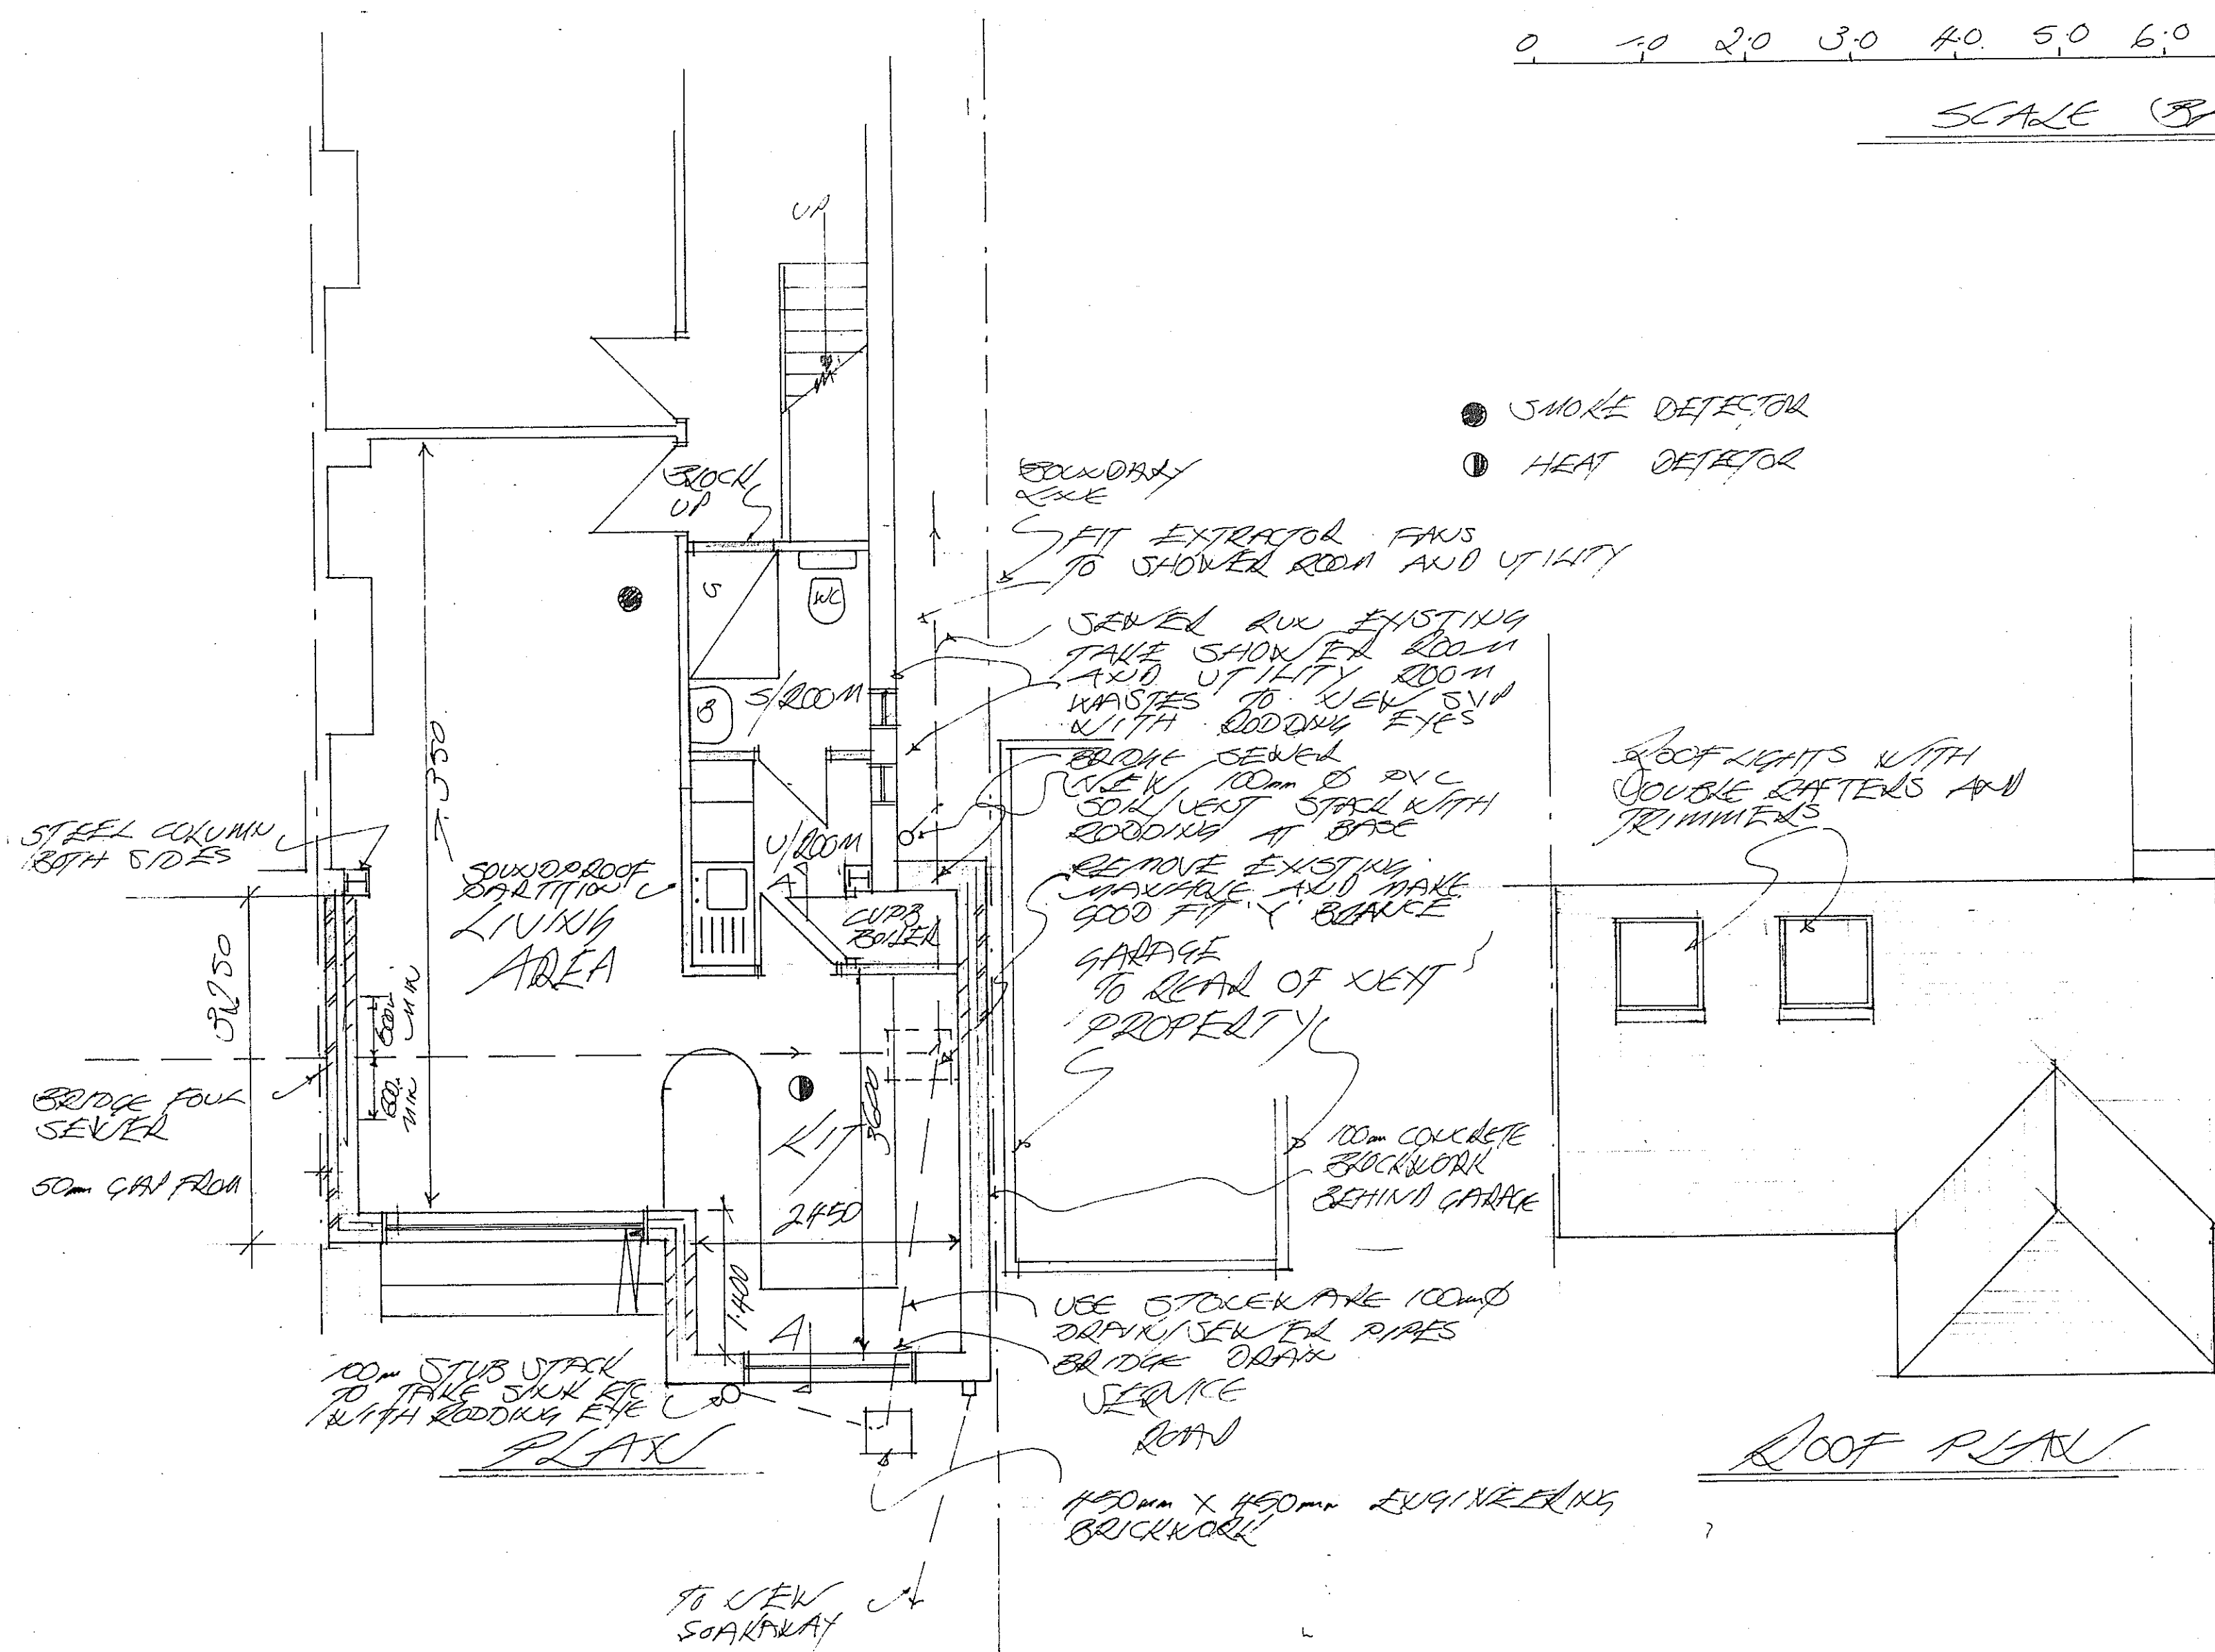 0 1.0 2.0 3.0 4.0 5.0 6.0
SCALE (BA
UP
SMOKE DETECTOR
HEAT DETECTOR
BLOCK
UP
BOUNDARY
LINE
FIT EXTRACTOR FANS
TO SHOWER ROOM AND UTILITY
S
WC
SEWER RUN EXISTING
TAKE SHOWER ROOM
AND UTILITY ROOM
WASTES TO NEW SVP
WITH RODDING EYES
B
S/ROOM
BRIDGE SEWER
NEW 100mm Ø PVC
SOIL/VENT STACK WITH
RODDING AT BASE
REMOVE EXISTING
MANHOLE AND MAKE
GOOD FIT 'Y' BRANCE
ROOF LIGHTS WITH
DOUBLE RAFTERS AND
TRIMMERS
7.350
STEEL COLUMN
BOTH SIDES
U/ROOM
SOUNDPROOF
PARTITION
LIVING
AREA
A
CUPB
BOILER
GARAGE
TO REAR OF NEXT
PROPERTY
3250
600
MIN
600
MIN
BRIDGE FOUL
SEWER
50mm GAP FROM
KIT
3600
2450
1.400
100mm CONCRETE
BLOCKWORK
BEHIND GARAGE
A
USE STONEWARE 100mmØ
DRAIN/SEWER PIPES
BRIDGE DRAIN
SERVICE
ROAD
100mm STUB STACK
TO TAKE SINK ETC
WITH RODDING EYE
PLAN
ROOF PLAN
450mm X 450mm ENGINEERING
BRICKWORK
TO NEW
SOAKAWAY